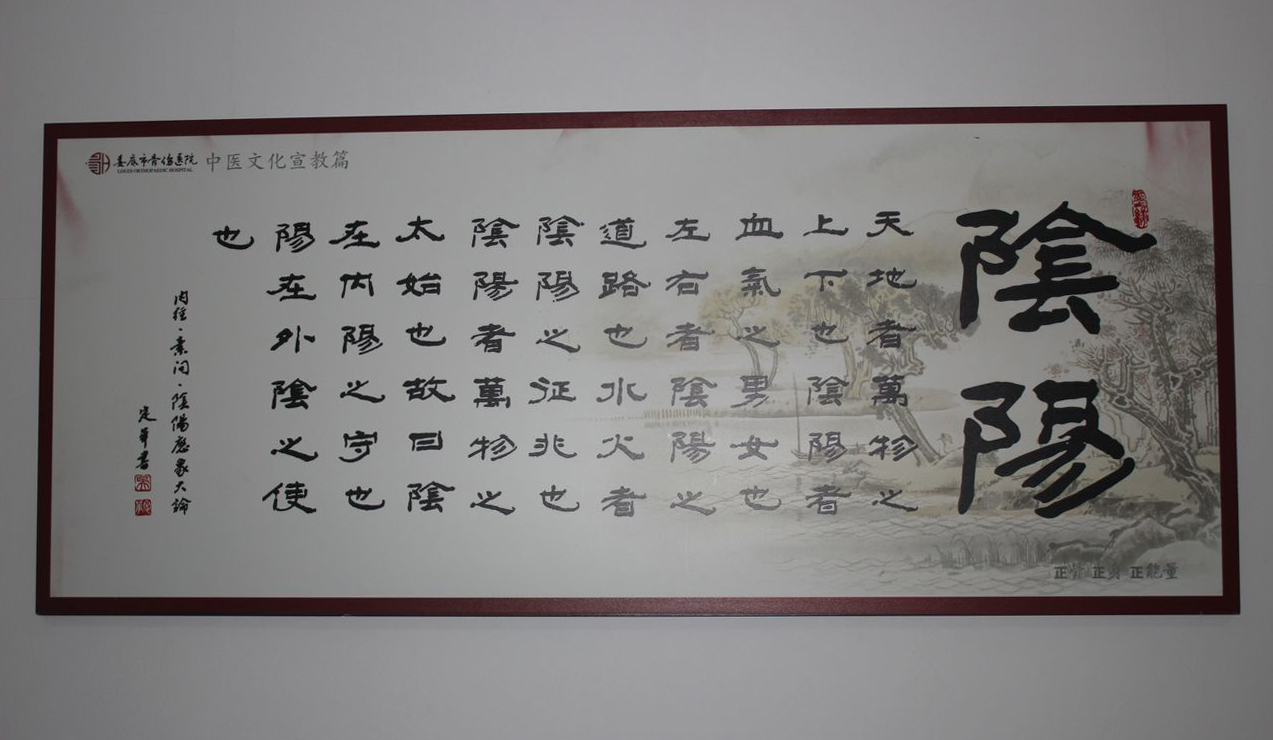 娄底市骨伤医院 中医文化宣教篇
LOUDI ORTHOPAEDIC HOSPITAL
陰陽
天地者萬物之
上下也陰陽者
血氣之男女也
左右者陰陽之
道路也水火者
陰陽之征兆也
陰陽者萬物之
太始也故曰陰
在内陽之守也
陽在外陰之使
也
内经·素问·陰陽應象大論
正骨 正身 正能量